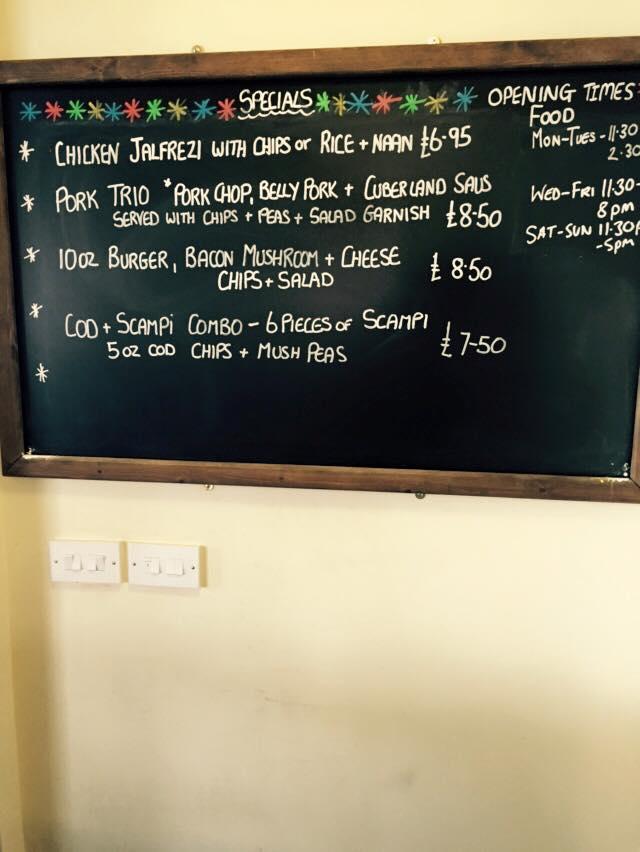 SPECIALS
* CHICKEN JALFREZI WITH CHIPS or RICE + NAAN £6.95
* PORK TRIO *PORK CHOP, BELLY PORK + CUBERLAND SAUS
SERVED WITH CHIPS + PEAS + SALAD GARNISH £8.50
* 10oz BURGER, BACON MUSHROOM + CHEESE £8.50
CHIPS + SALAD
* COD + SCAMPi COMBO - 6 PIECES OF SCAMPI £7-50
5oz COD CHIPS + MUSH PEAS
*
OPENING TIMES
FOOD
MON-TUES - 11.30
2.30
WED-FRI 11.30-
8pm
SAT-SUN 11.30
-5pm